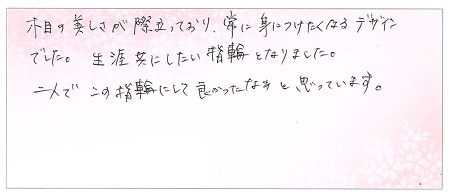 木目の美しさが際立っており、常に身につけたくなるデザイン
でした。生涯共にしたい指輪となりました。
二人でこの指輪にして良かったなぁと思っています。